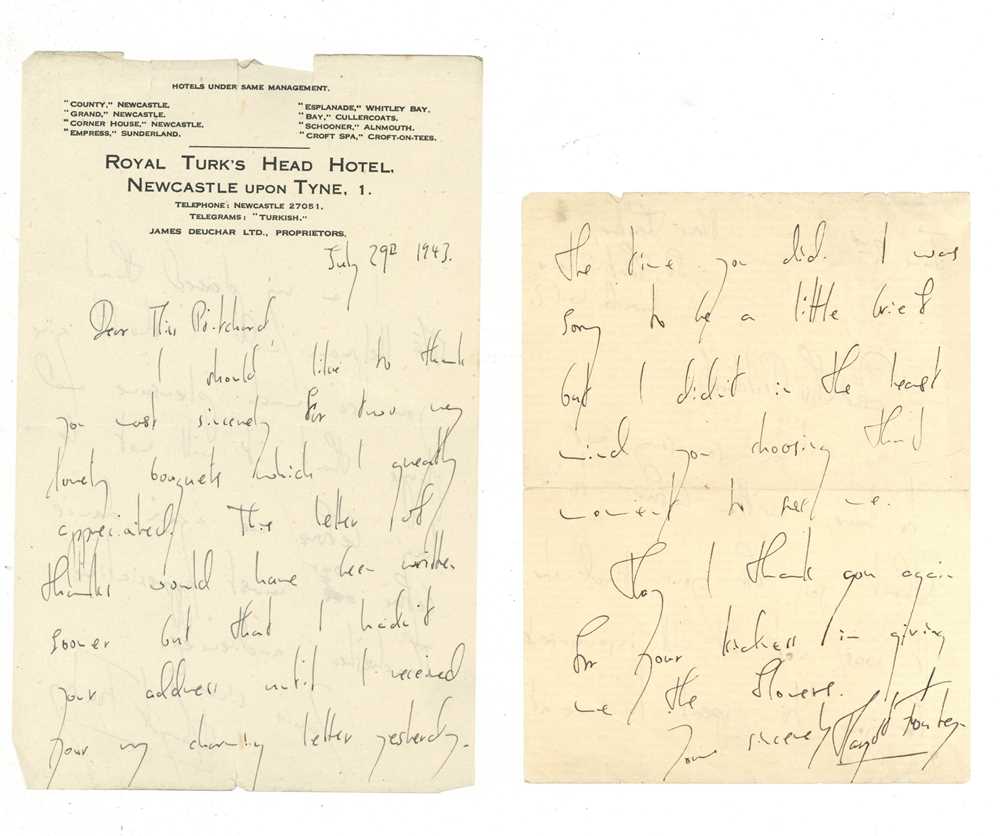 HOTELS UNDER SAME MANAGEMENT.
"COUNTY," NEWCASTLE.
"GRAND," NEWCASTLE.
"CORNER HOUSE," NEWCASTLE.
"EMPRESS," SUNDERLAND.
"ESPLANADE," WHITLEY BAY.
"BAY," CULLERCOATS.
"SCHOONER," ALNMOUTH.
"CROFT SPA," CROFT-ON-TEES.
ROYAL TURK'S HEAD HOTEL,
NEWCASTLE UPON TYNE, 1.
TELEPHONE: NEWCASTLE 27051.
TELEGRAMS: "TURKISH."
JAMES DEUCHAR LTD., PROPRIETORS.
July 29th 1943.
Dear Miss Pritchard,
I should like to thank
you most sincerely for two very
lovely bouquets which I greatly
appreciated. This letter of
thanks would have been written
sooner but that I hadn't
your address until I received
your very charming letter yesterday.
the time you did. I was
sorry to be a little brief
but I didn't in the least
mind you choosing that
moment to see me.
May I thank you again
for your kindness in giving
me the flowers.
Yours sincerely Margot Fonteyn